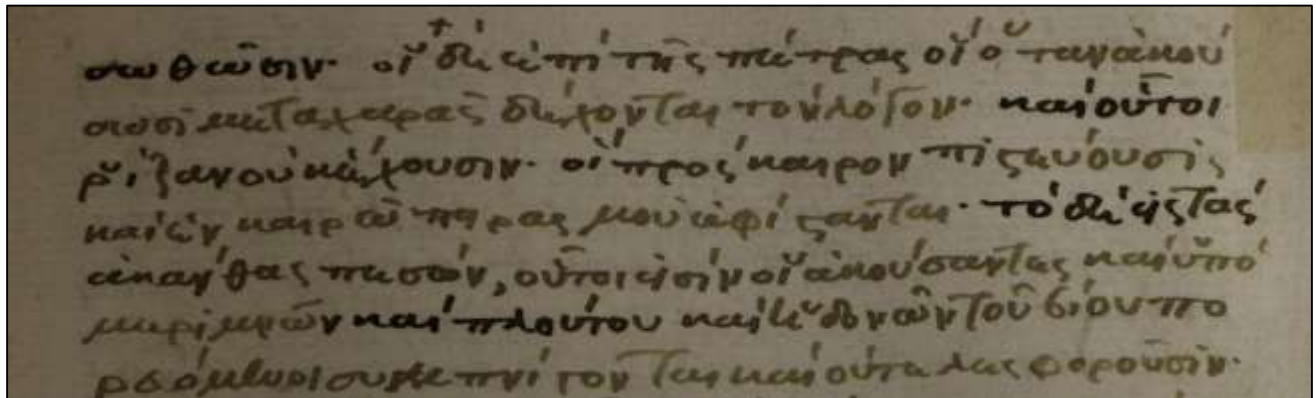 σωθῶσιν· οἱ δὲ ἐπὶ τῆς πέτρας οἳ ὅταν ἀκού
σωσι μετὰ χαρᾶς δέχονται τὸν λόγον· καὶ οὗτοι
ῥίζαν οὐκ ἔχουσιν· οἳ πρὸς καιρὸν πιστεύουσι
καὶ ἐν καιρῶ πειρασμοῦ ἀφίστανται· τὸ δὲ εἰς τὰς
ἀκάνθας πεσὸν, οὗτοι εἰσὶν οἱ ἀκούσαντες καὶ ὑπὸ
μεριμνῶν καὶ πλούτου καὶ ἡδονῶν τοῦ βίου πο
ρευόμενοι συμπνίγονται καὶ οὐ τελεσφοροῦσιν·